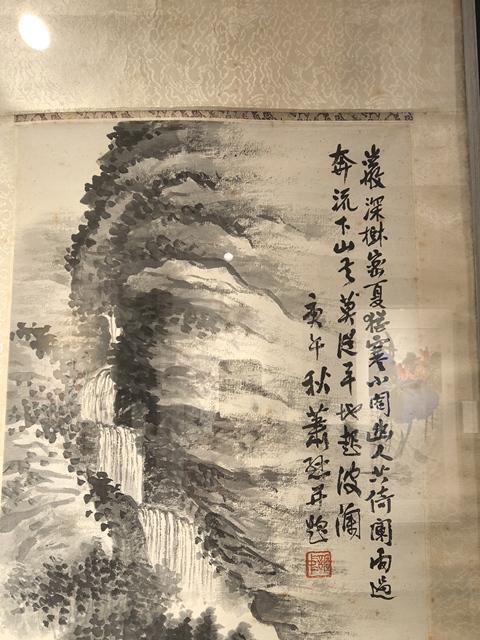 巖深樹密夏猶寒小閣幽人共倚闌雨過
奔流下山去莫從平地起波瀾
庚午秋蕭愻并題